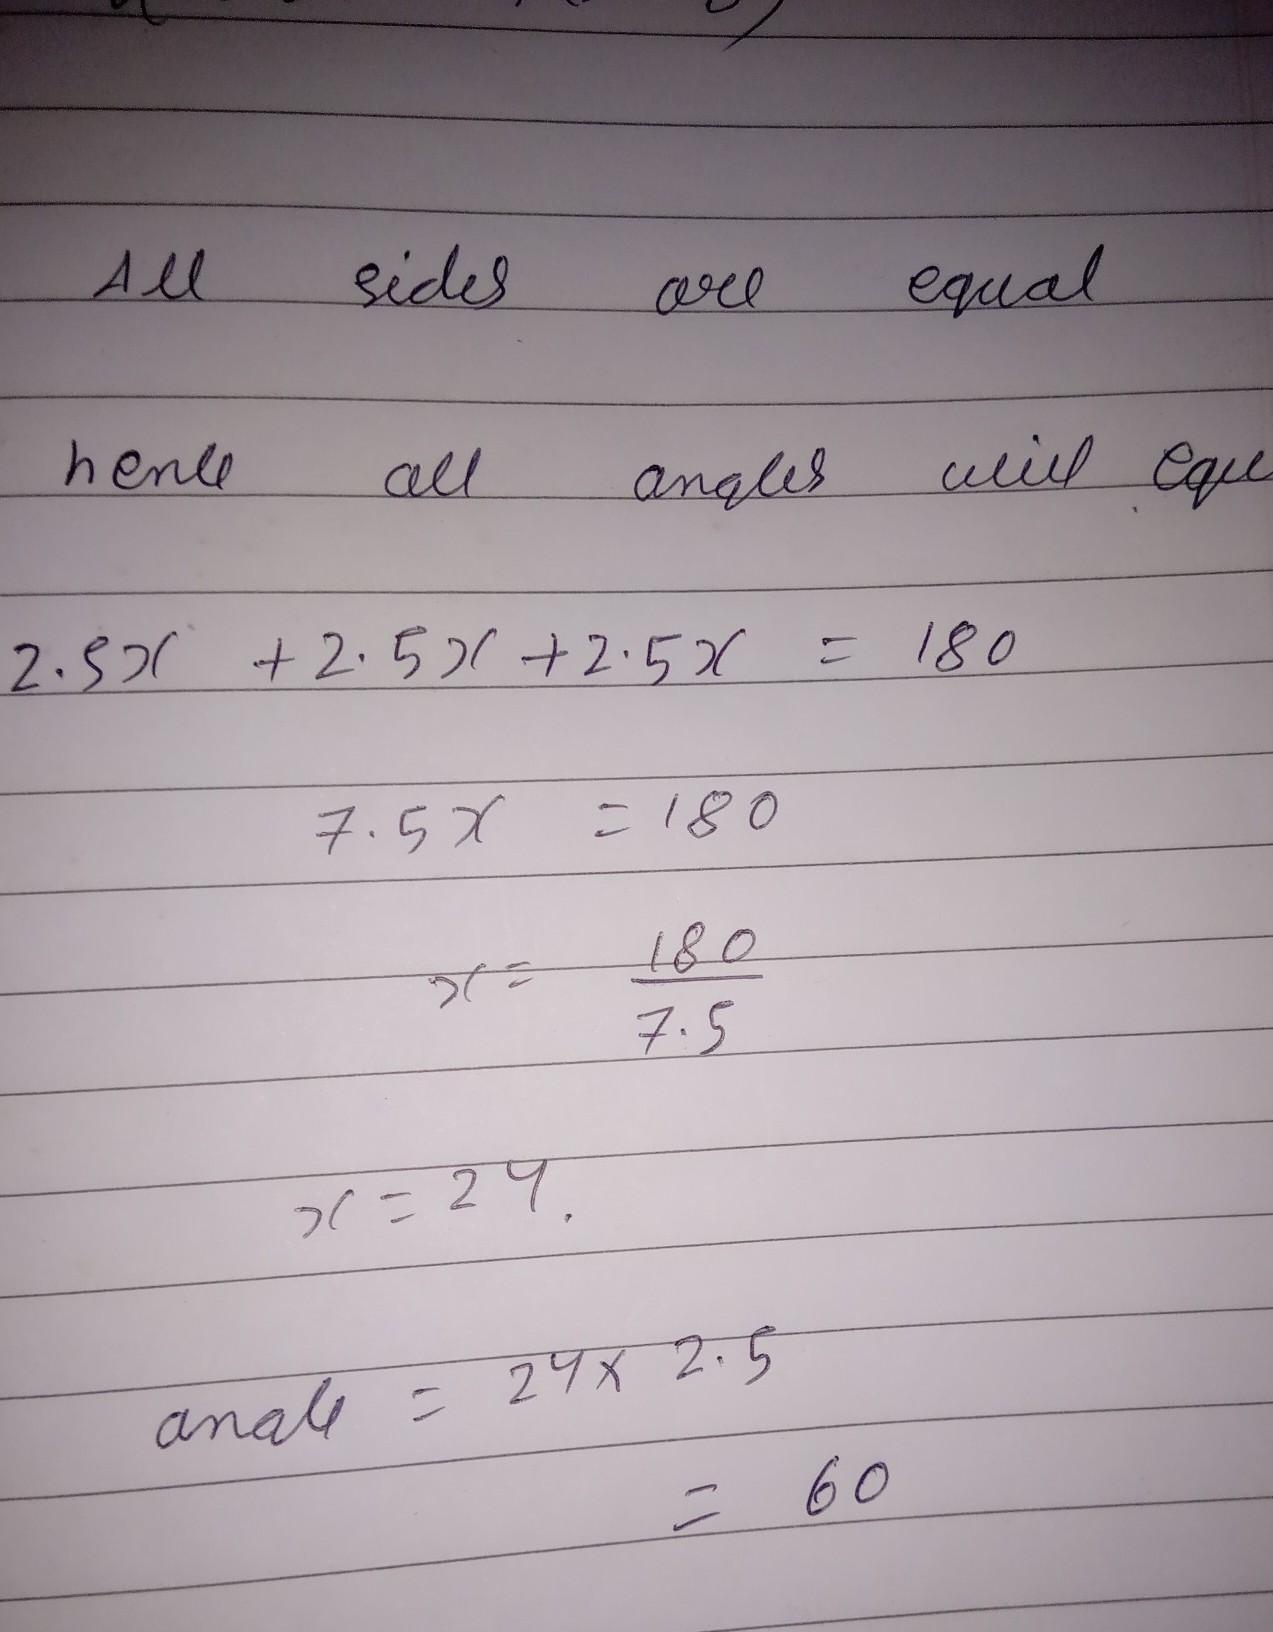 All sides are equal
hence all angles will eque
2.5x + 2.5x + 2.5x = 180
7.5x = 180
x = 180
7.5
x = 24.
angle = 24 x 2.5
= 60